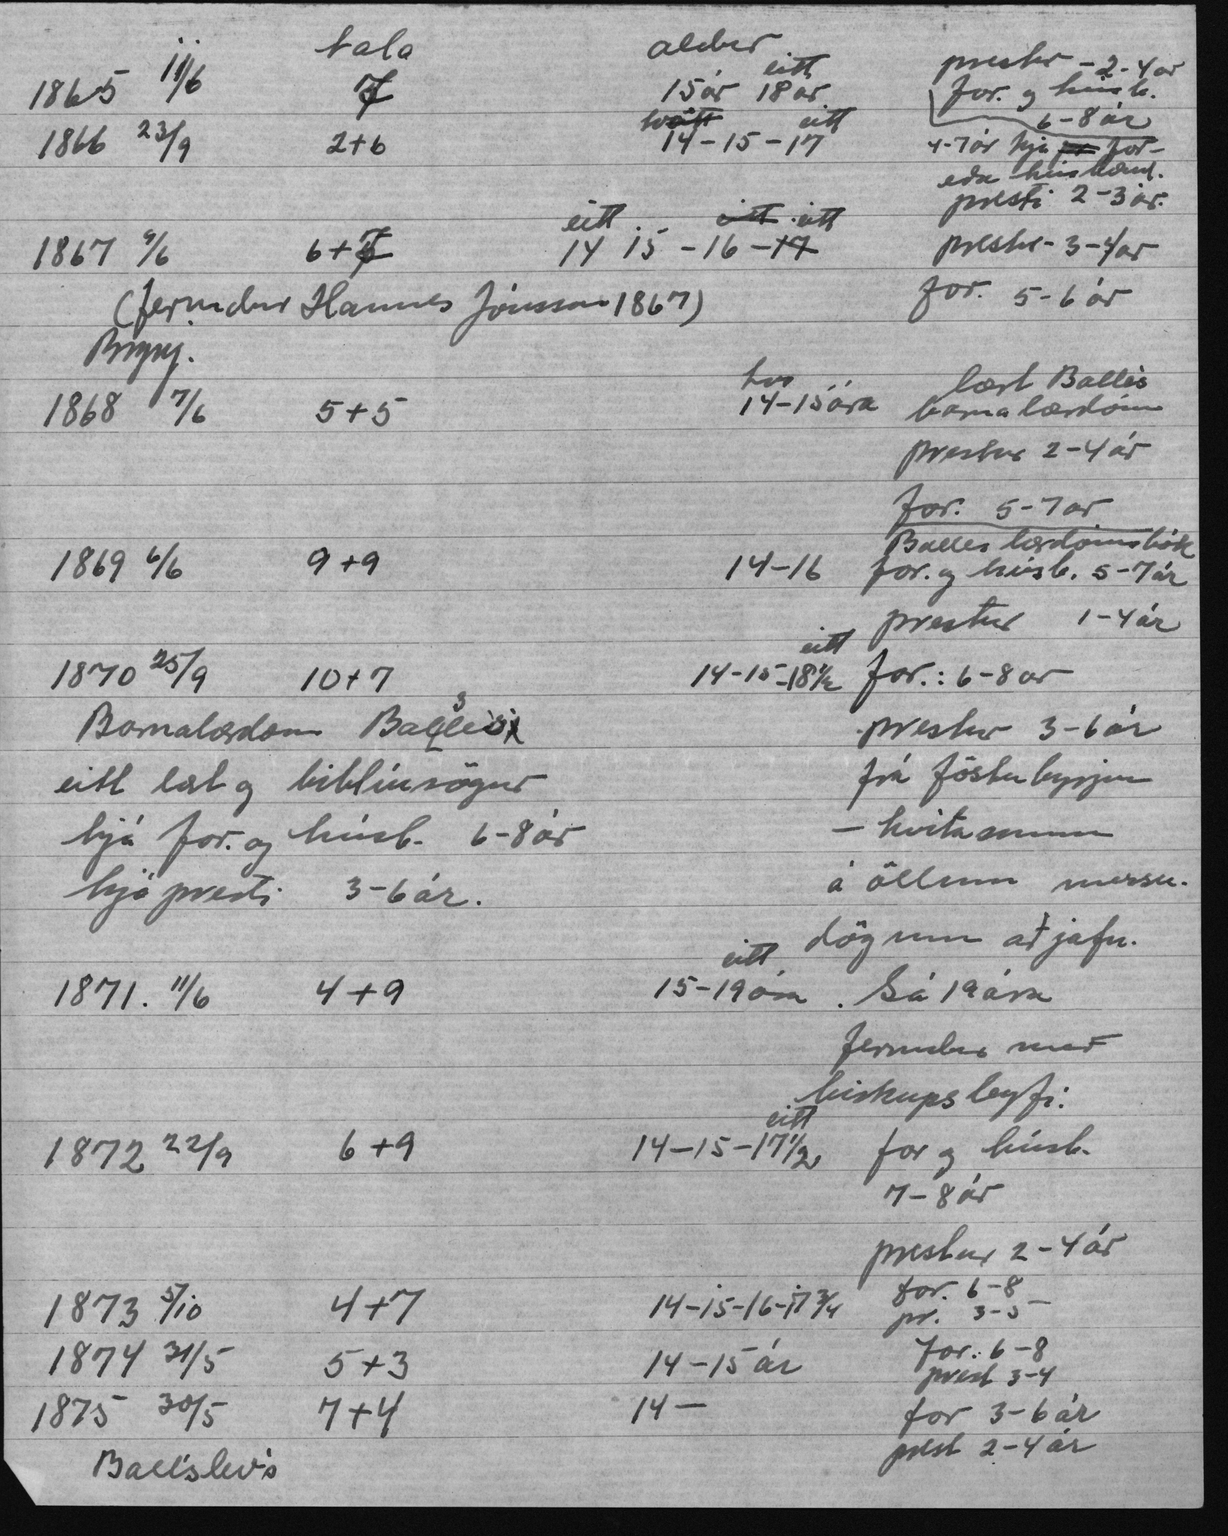 tala aldur prestur - 2-4 ar
1865 11/6 7 15 ár 18 ar eitt for. og húsb.
6-8 ár
1866 23/9 2+6 14-15-17 eitt 4-7 ár hjá for-
eda húsbænd.
presti 2-3 ár.
1867 9/6 6+7 eitt 14 15 - 16 - 17 eitt prestur - 3-4 ar
(fermdur Hannes Jónsson 1867) for. 5-6 ár
Brynj.
1868 7/6 5+5 tvö 14-15 ára lært Balles
barnalærdóm
prestur 2-4 ár
for. 5-7 ar
Balles lærdómsbók
1869 6/6 9+9 14-16 for. og húsb. 5-7 ár
prestur 1-4 ár
1870 25/9 10+7 14-15-18 1/2 eitt for.: 6-8 ar
Barnalærdom prestur 3-6 ár
eitt læt og biblíusögur frá föstu byrjun
hjá for. og húsb. 6-8 ár - hvítasunnu
hjá presti 3-6 ár. á öllum messu-
dögum að jafn.
1871. 11/6 4+9 15-19 ára eitt . Sá 19 ára
fermdur með
biskupsleyfi.
1872 22/9 6+9 14-15-17 1/2 eitt for og húsb.
7-8 ár
prestur 2-4 ár
1873 5/10 4+7 14-15-16-17 3/4 for. 6-8
pr. 3-5
1874 31/5 5+3 14-15 ár for.: 6-8
prest 3-4
1875 30/5 7+4 14- for 3-6 ár
prest 2-4 ár
Ballslev's